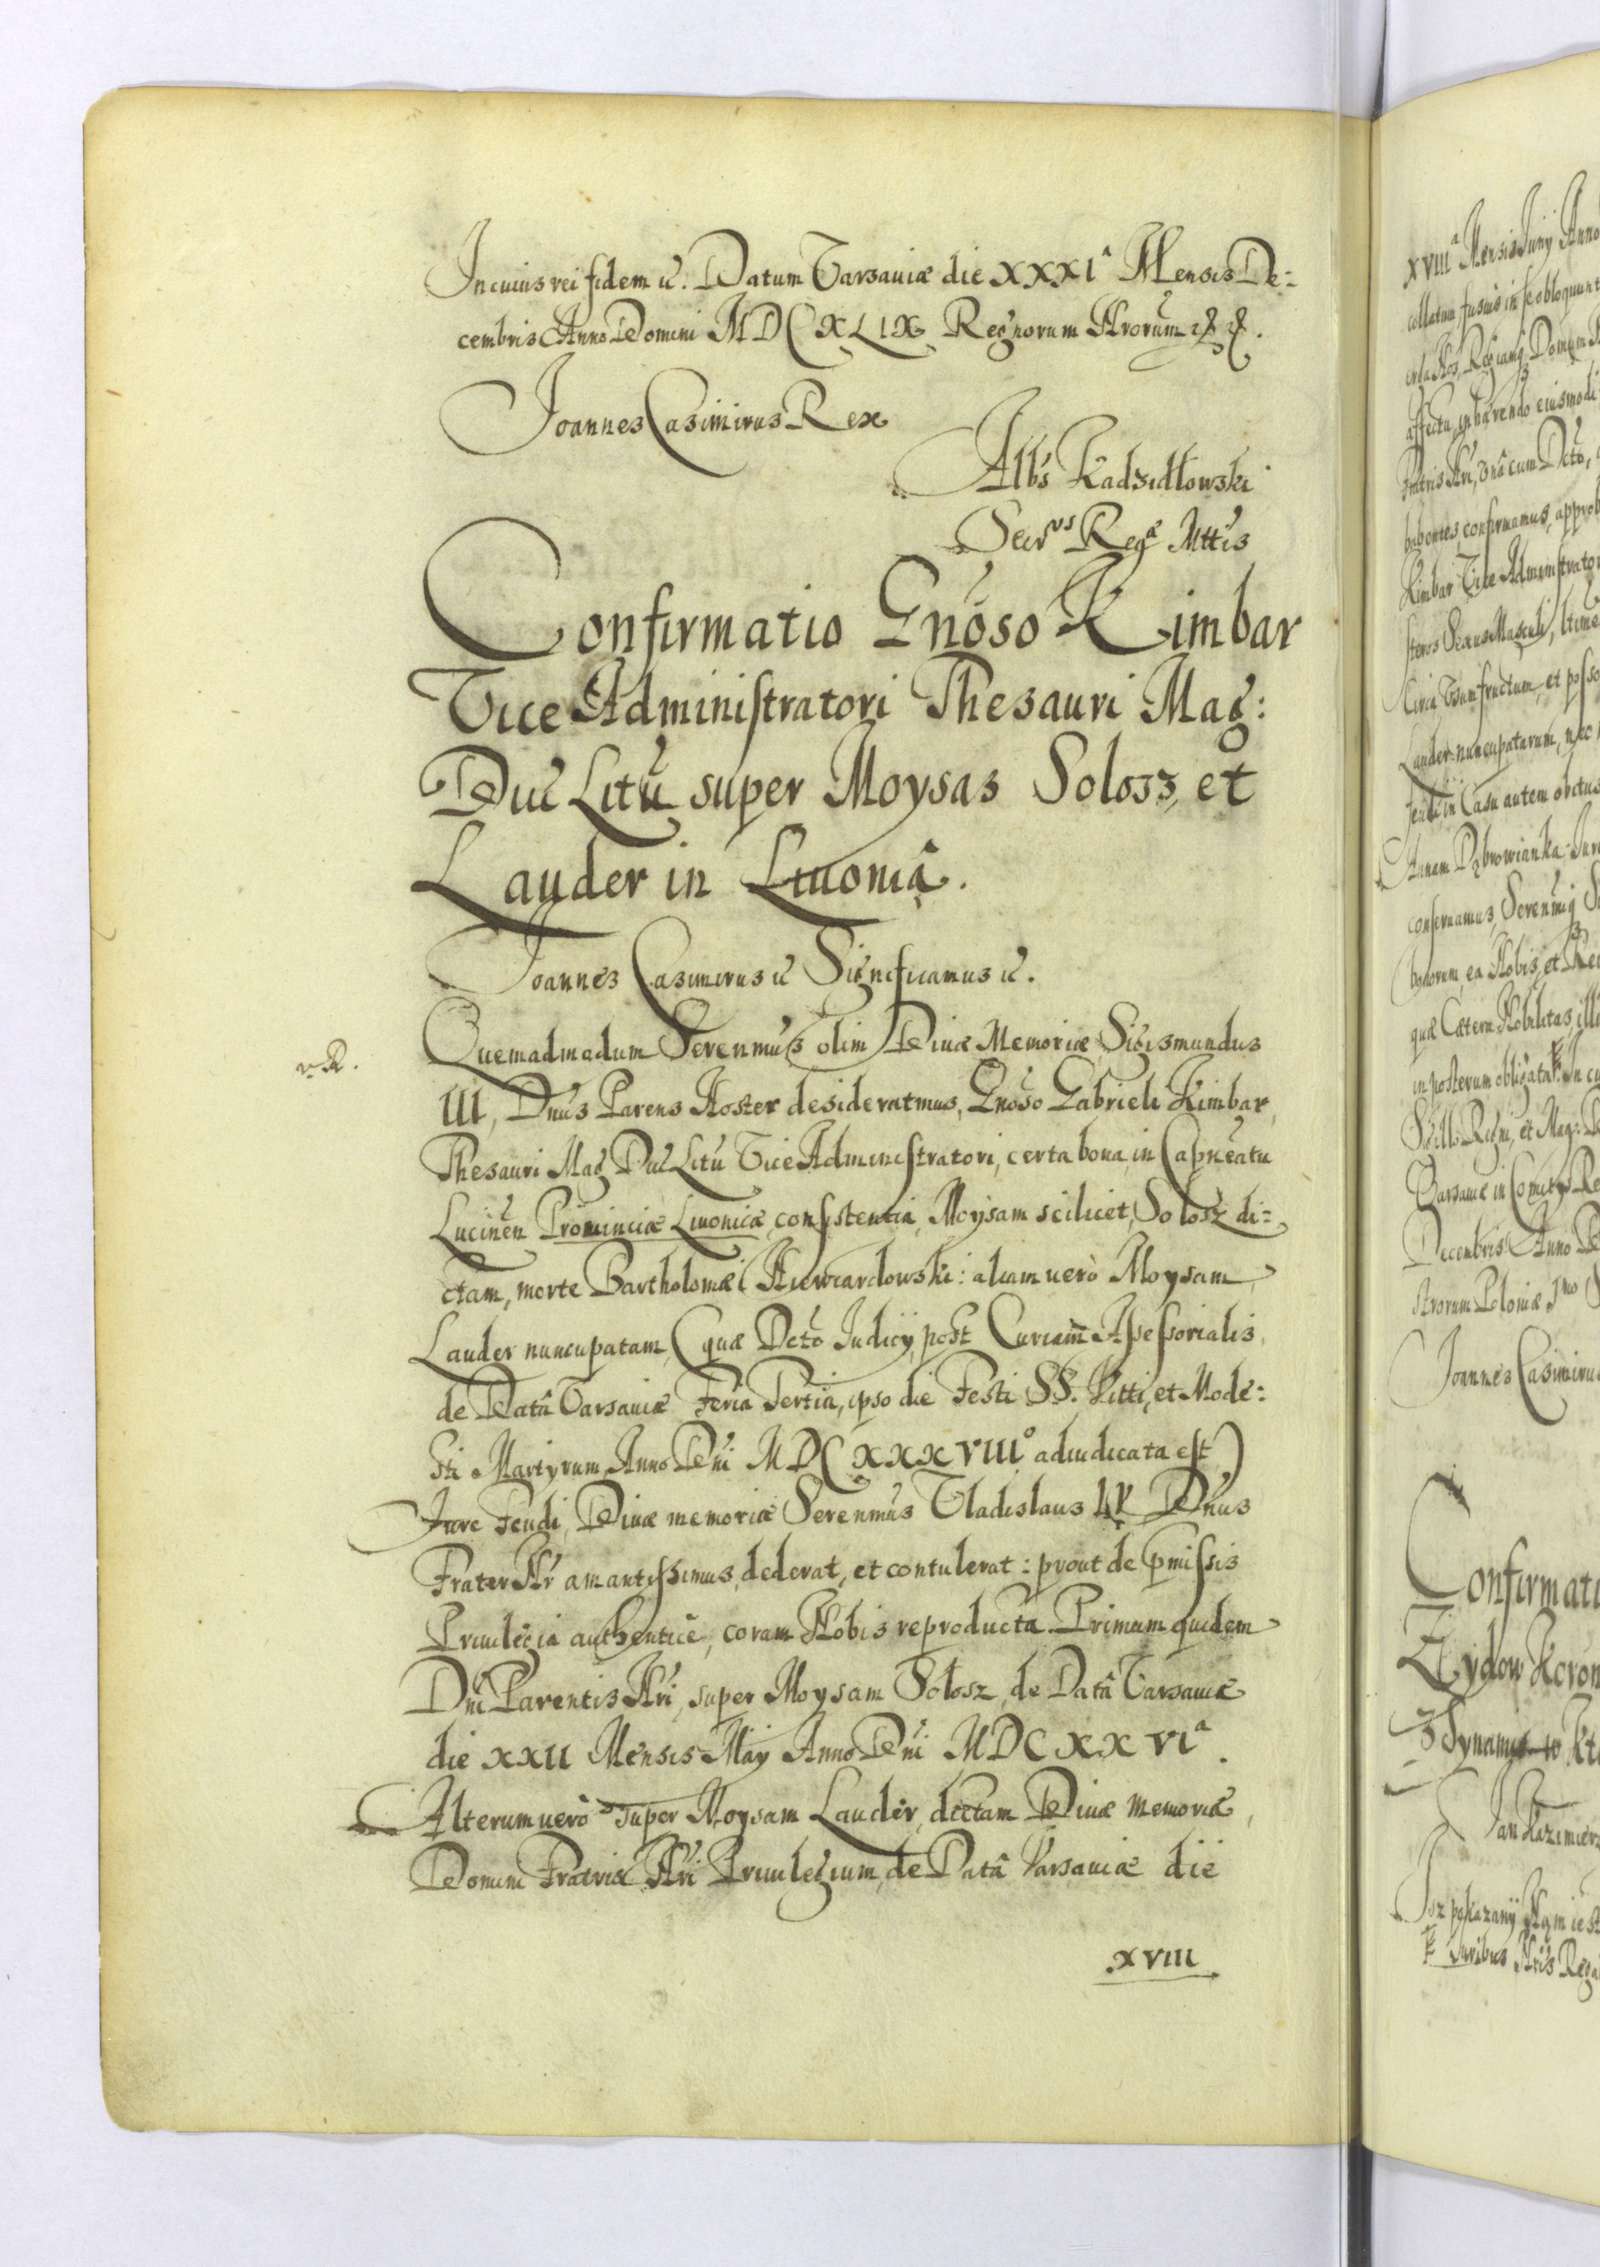 In cuius rei fidem etc. Datum Varsaviæ die XXXIª Mensis De=
cembris Anno Domini MDCXLIX Regnorum Nrorum &c &c.
Joannes Casimirus Rex
Albs Kadzidłowski
Secrus Regæ Mttis
Confirmatio Gnoso Kimbar
Vice Administratori Thesauri Mag:
Duc Litu super Moysas Solosz, et
Lauder in Livoniâ.
Joannes Casimirus etc Significamus etc.
Quemadmodum Serenmus olim Divæ Memoriæ Sigismundus
III, Dnus Parens Noster desideratmus, Gnoso Gabrieli Kimbar,
Thesauri Mag Duc Litu Vice Administratori, certa bona, in Capneatu
Lucinen Prouinciæ Liuonicæ consistentia, Moysam scilicet, Solosz di=
ctam, morte Bartholomæi : aliam verò Moysam
Lauder nuncupatam, (quæ Decto Judicij, post Curiam Assessorialis,
de Datâ Varsaviæ Feria Tertia, ipso die Festi SS. Vitti, et Mode=
sti Martyrum, Anno Dni MDCXXXVIIIº adiudicata est)
Jure Feudi, Divæ memoriæ Serenmus Vladislaus IV Dnus
Frater Nr amantissimus, dederat, et contulerat: prout de pmissis
Priuilegia authenticè, coram Nobis reproducta. Primum quidem
Dni Parentis Nri, super Moysam Solosz, de Datâ Varsaviæ
die XXII Mensis Maÿ Anno Dni MDCXXVIª.
Alterum verò super Moysam Lauder, dictam Divæ memoriæ,
Domini Fratris Nri Priuilegium, de Datâ Varsaviæ die
XVIII
XVIIIª Mensis Junÿ Anno
collatum fusius in se obloquunt
affectu, inhærendo eiusmodi
Fratris Nri, unâ cum Decto,
confirmamus, approb
Kimbar Vice Administrator
Circa Usumfructum, et posse
Lauder nuncupatarum, nec
in Casu autem obitus
Annam Dąbrowianka, Jure
conservamus, Serenmiq
bonorum, ea Nobis, et
quæ Cætera Nobilitas, illi
in posterum obligata. In cu
Regni, et Mag: D
Varsaviæ in Comitijs Re
Decembris Anno D
Joannes Casimirus
Confirmati
Żydow Koron
Jan Kazimierz
Isz pokazany Nam iest
Juribus Nris Rega